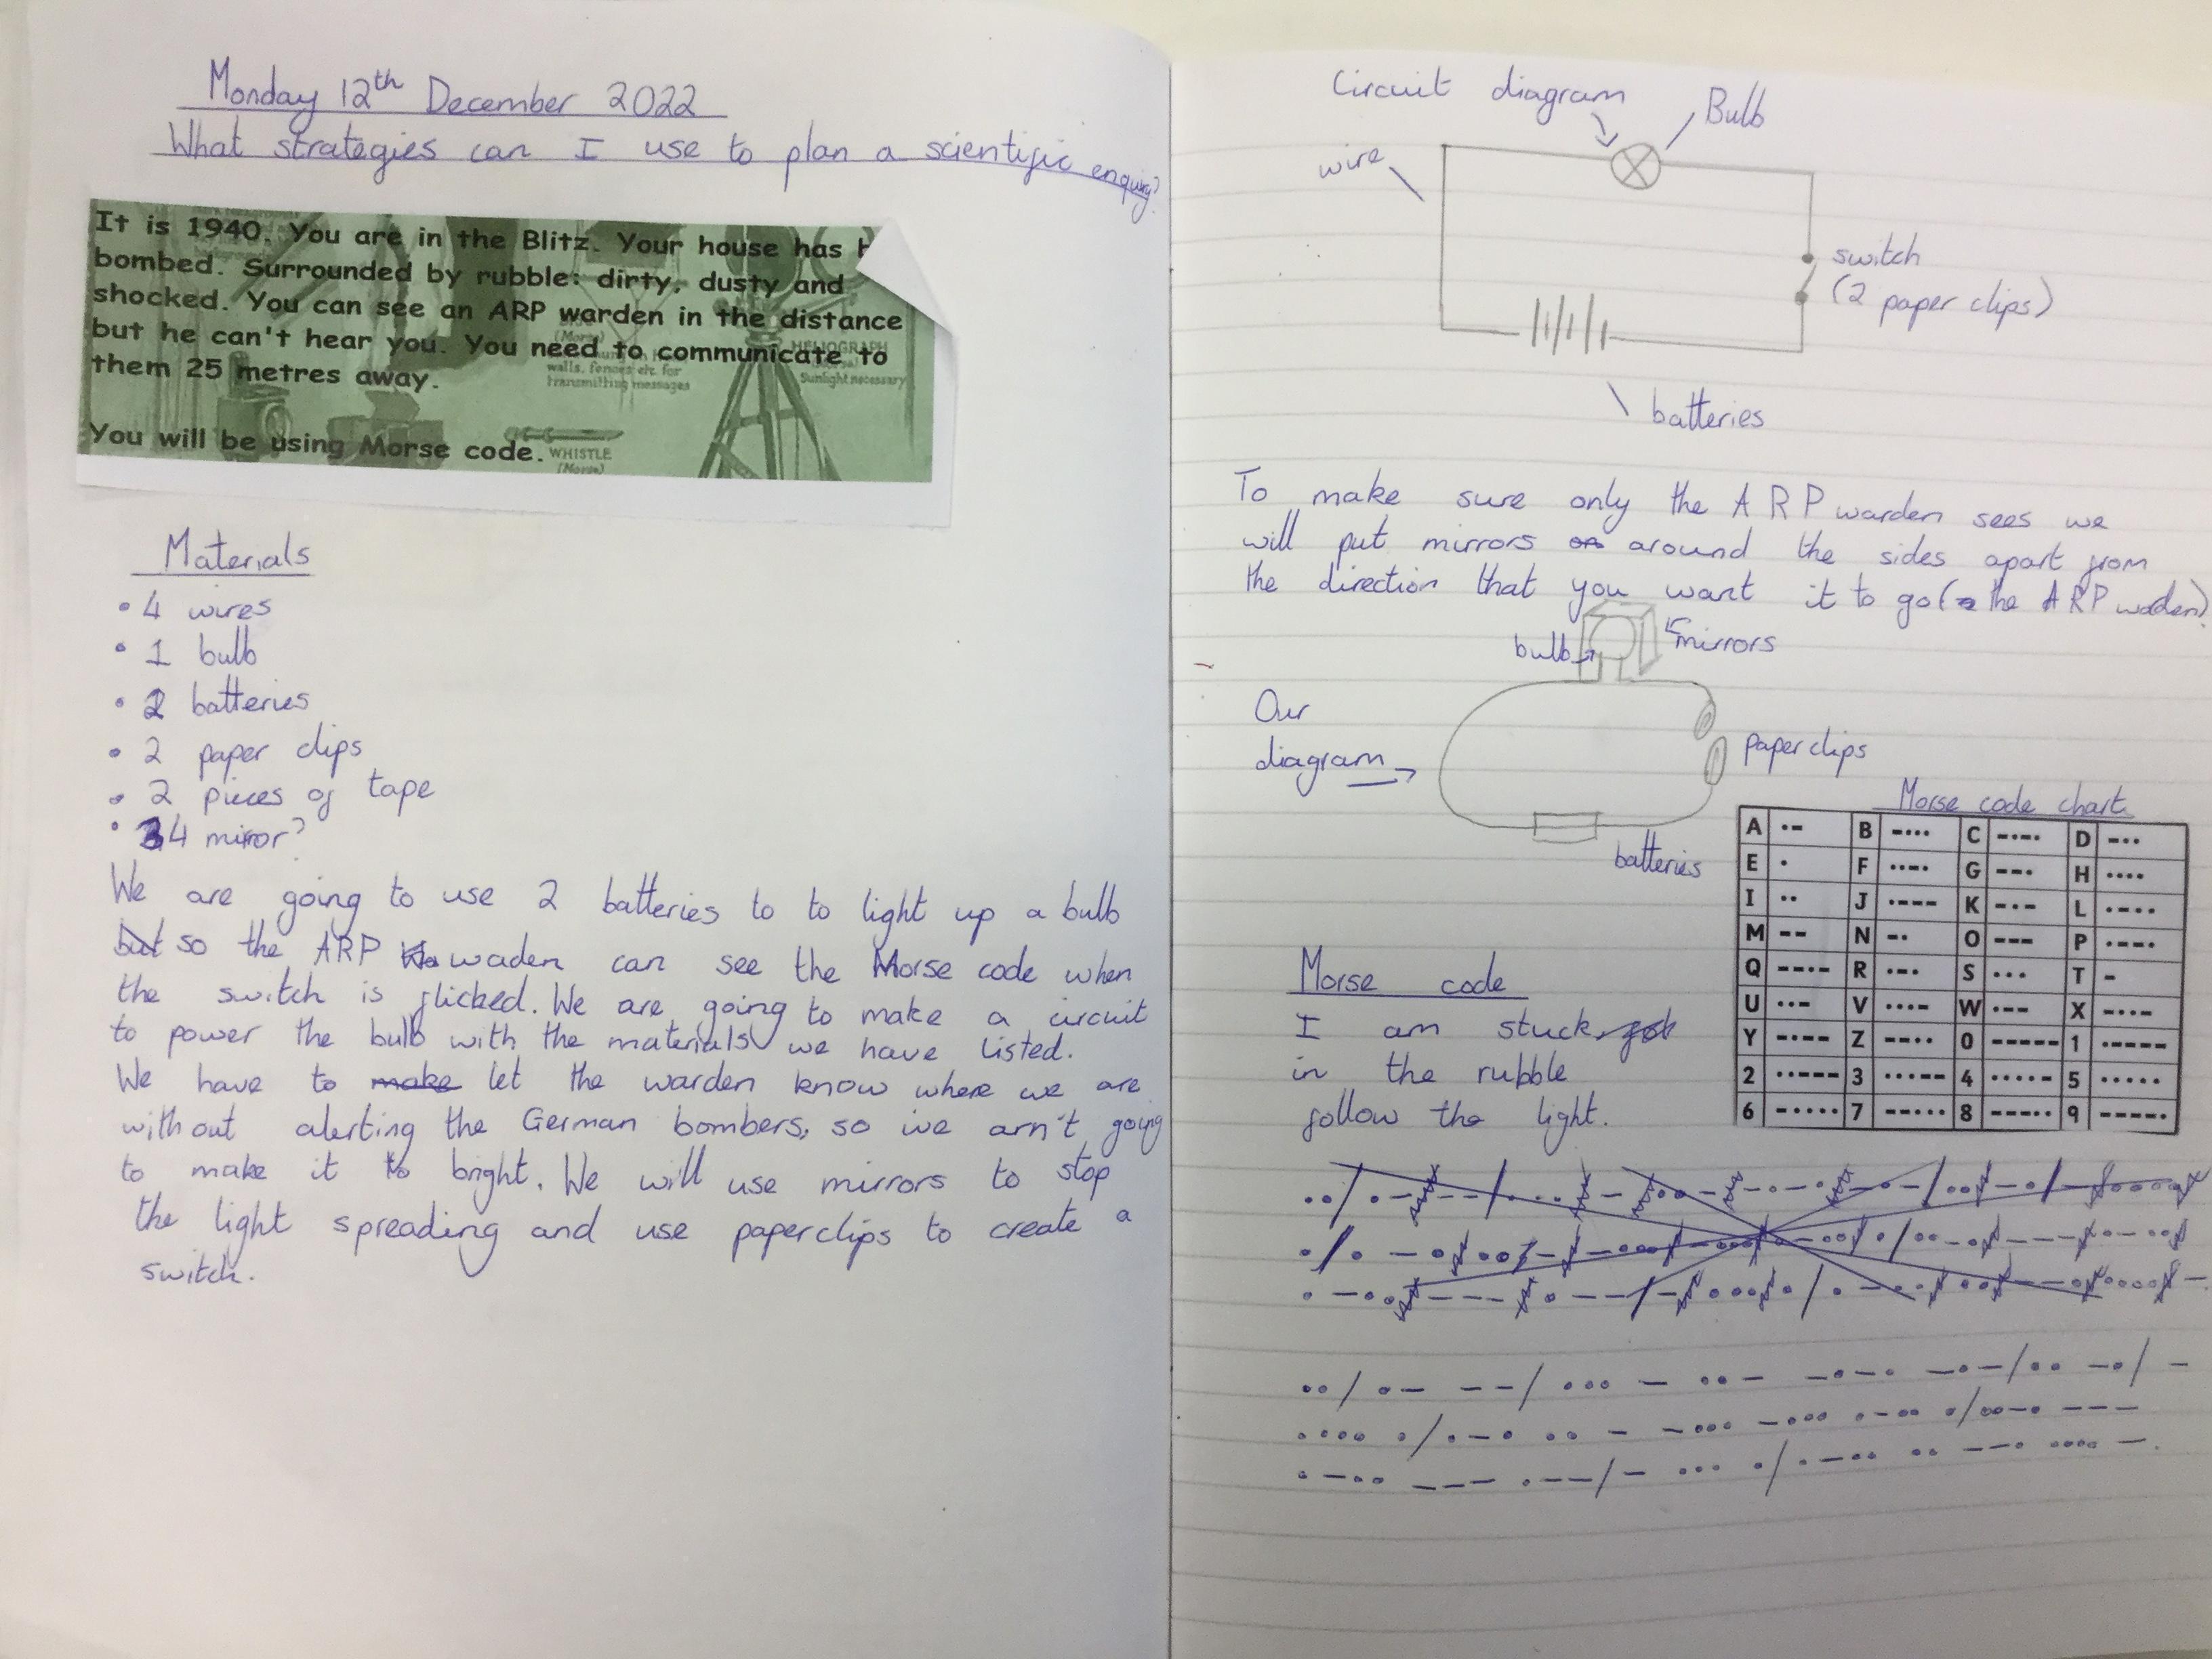 Monday 12th December 2022
What strategies can I use to plan a scientific enquiry?
It is 1940. You are in the Blitz. Your house has
bombed. Surrounded by rubble: dirty, dusty and
shocked. You can see an ARP warden in the distance
but he can't hear you. You need to communicate to
them 25 metres away.
HELIOGRAPH
walls, fences etc for
transmitting messages
Sunlight necessary
You will be using Morse code.
WHISTLE
(Morse)
Materials
• 4 wires
• 1 bulb
• 2 batteries
• 2 paper clips
• 2 pieces of tape
• 4 mirror?
We are going to use 2 batteries to to light up a bulb
but so the ARP waden can see the Morse code when
the switch is flicked. We are going to make a circuit
to power the bulb with the materials we have listed.
We have to make let the warden know where we are
without alerting the German bombers, so we arn't going
to make it to bright. We will use mirrors to stop
the light spreading and use paperclips to create a
switch.
Circuit diagram
Bulb
wire
switch
(2 paper clips)
batteries
To make sure only the ARP warden sees we
will put mirrors around the sides apart from
the direction that you want it to go (the ARP waden).
bulb
mirrors
Our
diagram
paperclips
batteries
Morse code chart
A ·- B -··· C -·-· D -··
E · F ··-· G --· H ····
I ·· J ·--- K -·- L ·-··
M -- N -· O --- P ·--·
Q --·- R ·-· S ··· T -
U ··- V ···- W ·-- X -··-
Y -·-- Z --·· 0 ----- 1 ·----
2 ··--- 3 ···-- 4 ····- 5 ·····
6 -···· 7 --··· 8 ---·· 9 ----·
Morse code
I am stuck
in the rubble
follow the light.
··/ ·- --/ ··· - ··- -·-· -·-/ ·· -·/ -
···· ·/ ·-· ·· - -··· -··· ·-·· ·/ ··-· ---
·-·· --- ·--/ - ··· ·/ ·-·· ·· --· ···· -.